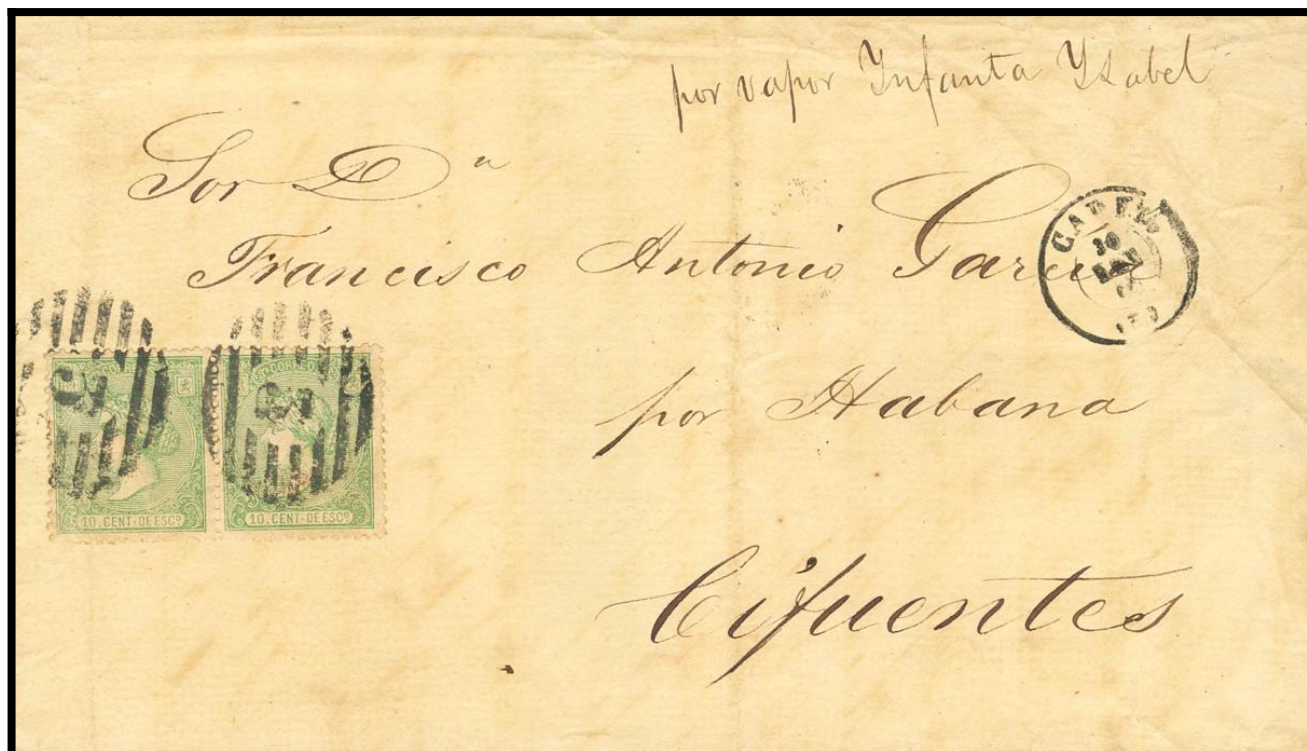 por vapor Ynfanta Ysabel
Sor Dn
Francisco Antonio Garcia
por Habana
Cifuentes
30
CORREOS
10 CENT. DE ESCO
10 CENT. DE ESCO